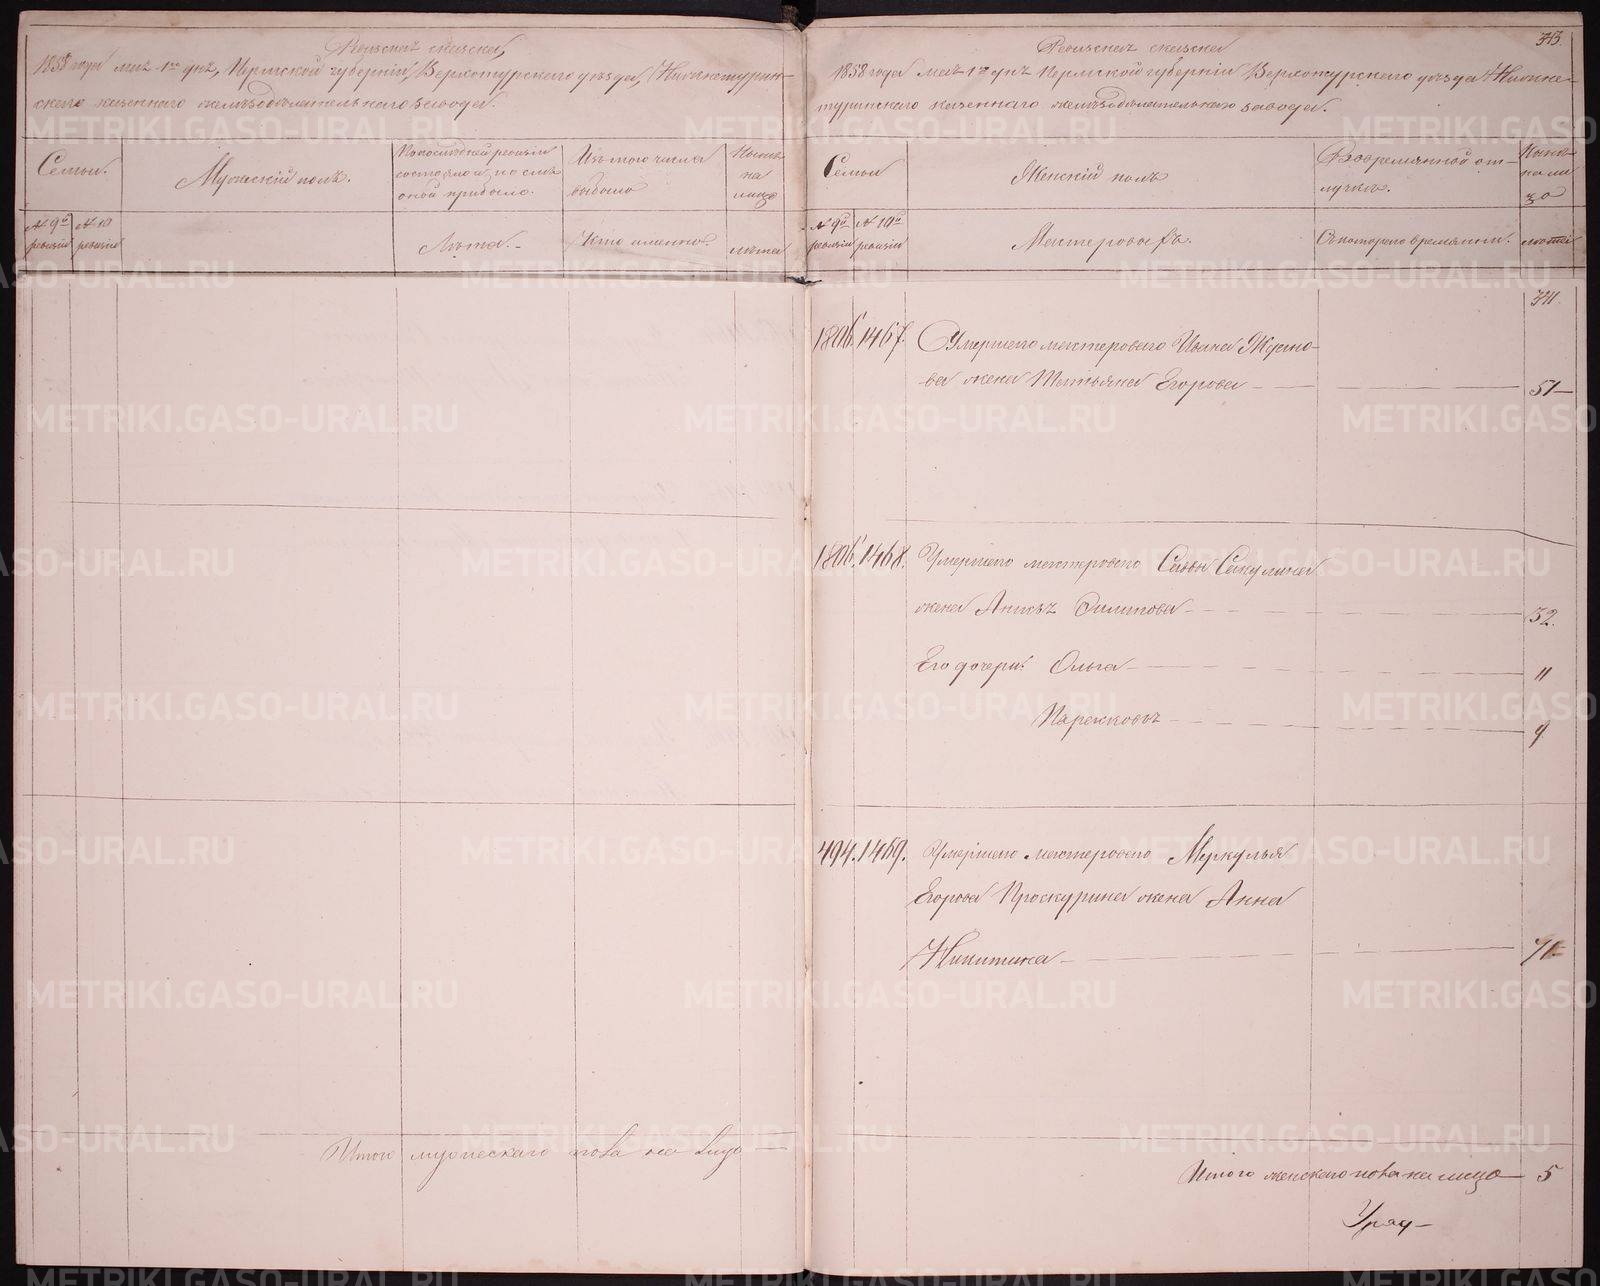 Ревизская сказка,
1858 года мая 1го дня, Пермской губернии, Верхотурского уезда, Нижнетурин-
скаго казеннаго железоделательнаго завода.
Семьи.
Мужескій полъ.
По последней ревизіи
состояло и после
оной прибыло.
Изъ того числа
выбыло
Ныне
на
лицо
№ 9й
ревизіи
№ 10
ревизіи
Лета.
Кто именно.
лета
313.
Ревизская сказка
1858 года мая 1го дня Пермской губерніи Верхотурского уезда Нижне-
туринскаго казеннаго железоделательнаго завода.
Семьи
Женскій полъ
Во временной от-
лучке.
Ныне
на ли
цо
№ 9й
ревизіи
№ 10й
ревизіи
Мастеровыхъ.
Съ котораго времяни.
летъ
311.
1467.
Умершаго мастероваго Ивана
ва жена Татьяна Егорова
51
1468.
Умершаго мастероваго Савы Сакулина
жена Анисья Филипова
32.
Его дочери: Ольга
11
Парасковья
9
494. 1469.
Умершаго мастероваго Меркулья
Егорова Проскурина жена Анна
Никитина
71
Итого мужескаго пола на лицо
Итого женскаго пола на лицо 5
METRIKI.GASO-URAL.RU